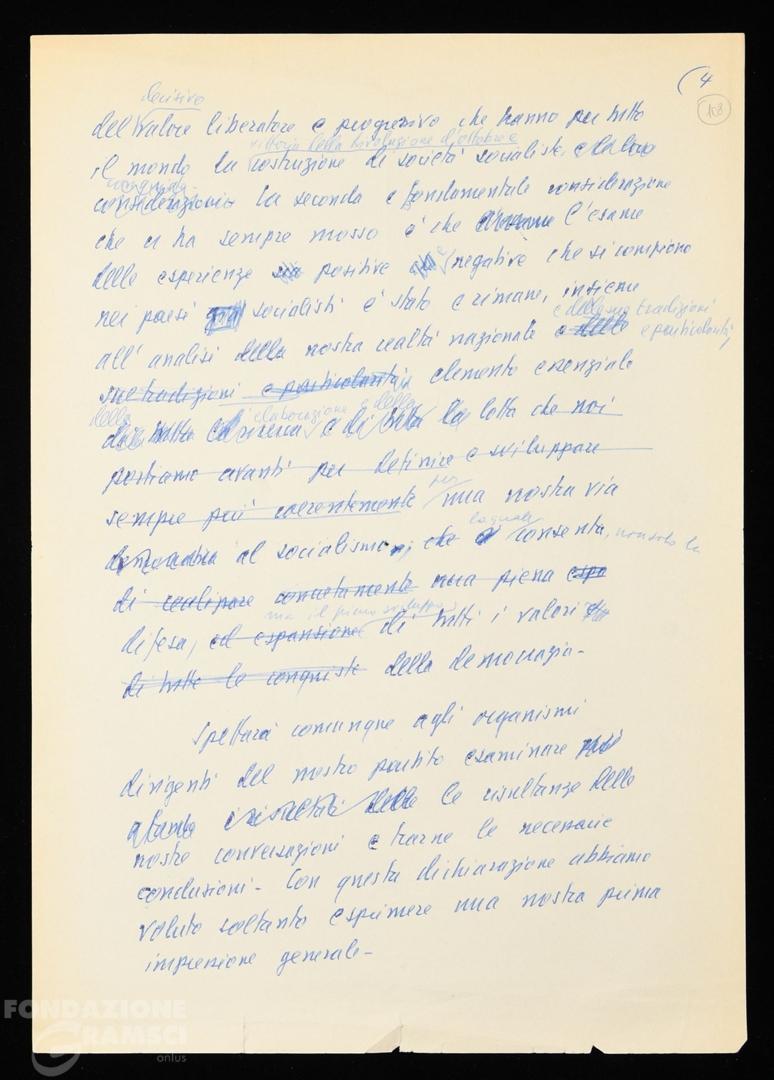 (4
158
decisivo
del valore liberatore e progressivo che hanno per tutto
vittoria della rivoluzione d'ottobre e
il mondo la costruzione di società socialiste.
considerazioni La seconda e fondamentale considerazione
che ci ha sempre mosso è che l'esame
delle esperienze sia positive sia negative che si compiono
nei paesi socialisti è stato e rimane, insieme
e delle sue tradizioni
all'analisi della nostra realtà nazionale e delle e particolarità,
sue tradizioni e particolarità elemento essenziale
della elaborazione e della
della ricerca e di tutta la lotta che noi
portiamo avanti per definire e sviluppare
per
sempre più coerentemente una nostra via
la quale
democratica al socialismo, che consenta, non solo la
di realizzare concretamente una piena espa
ma il pieno sviluppo
difesa, ed espansione di tutti i valori
di tutte le conquiste della democrazia -
Spetterà comunque agli organismi
dirigenti del nostro partito esaminare
i risultati delle le risultanze delle
nostre conversazioni e trarne le necessarie
conclusioni - Con questa dichiarazione abbiamo
voluto soltanto esprimere una nostra prima
impressione generale -
FONDAZIONE
GRAMSCI
onlus